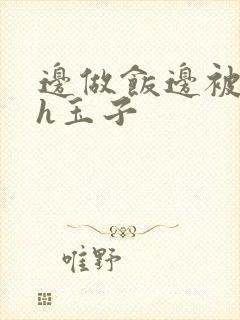 邊做飯邊被
h玉子
唯野